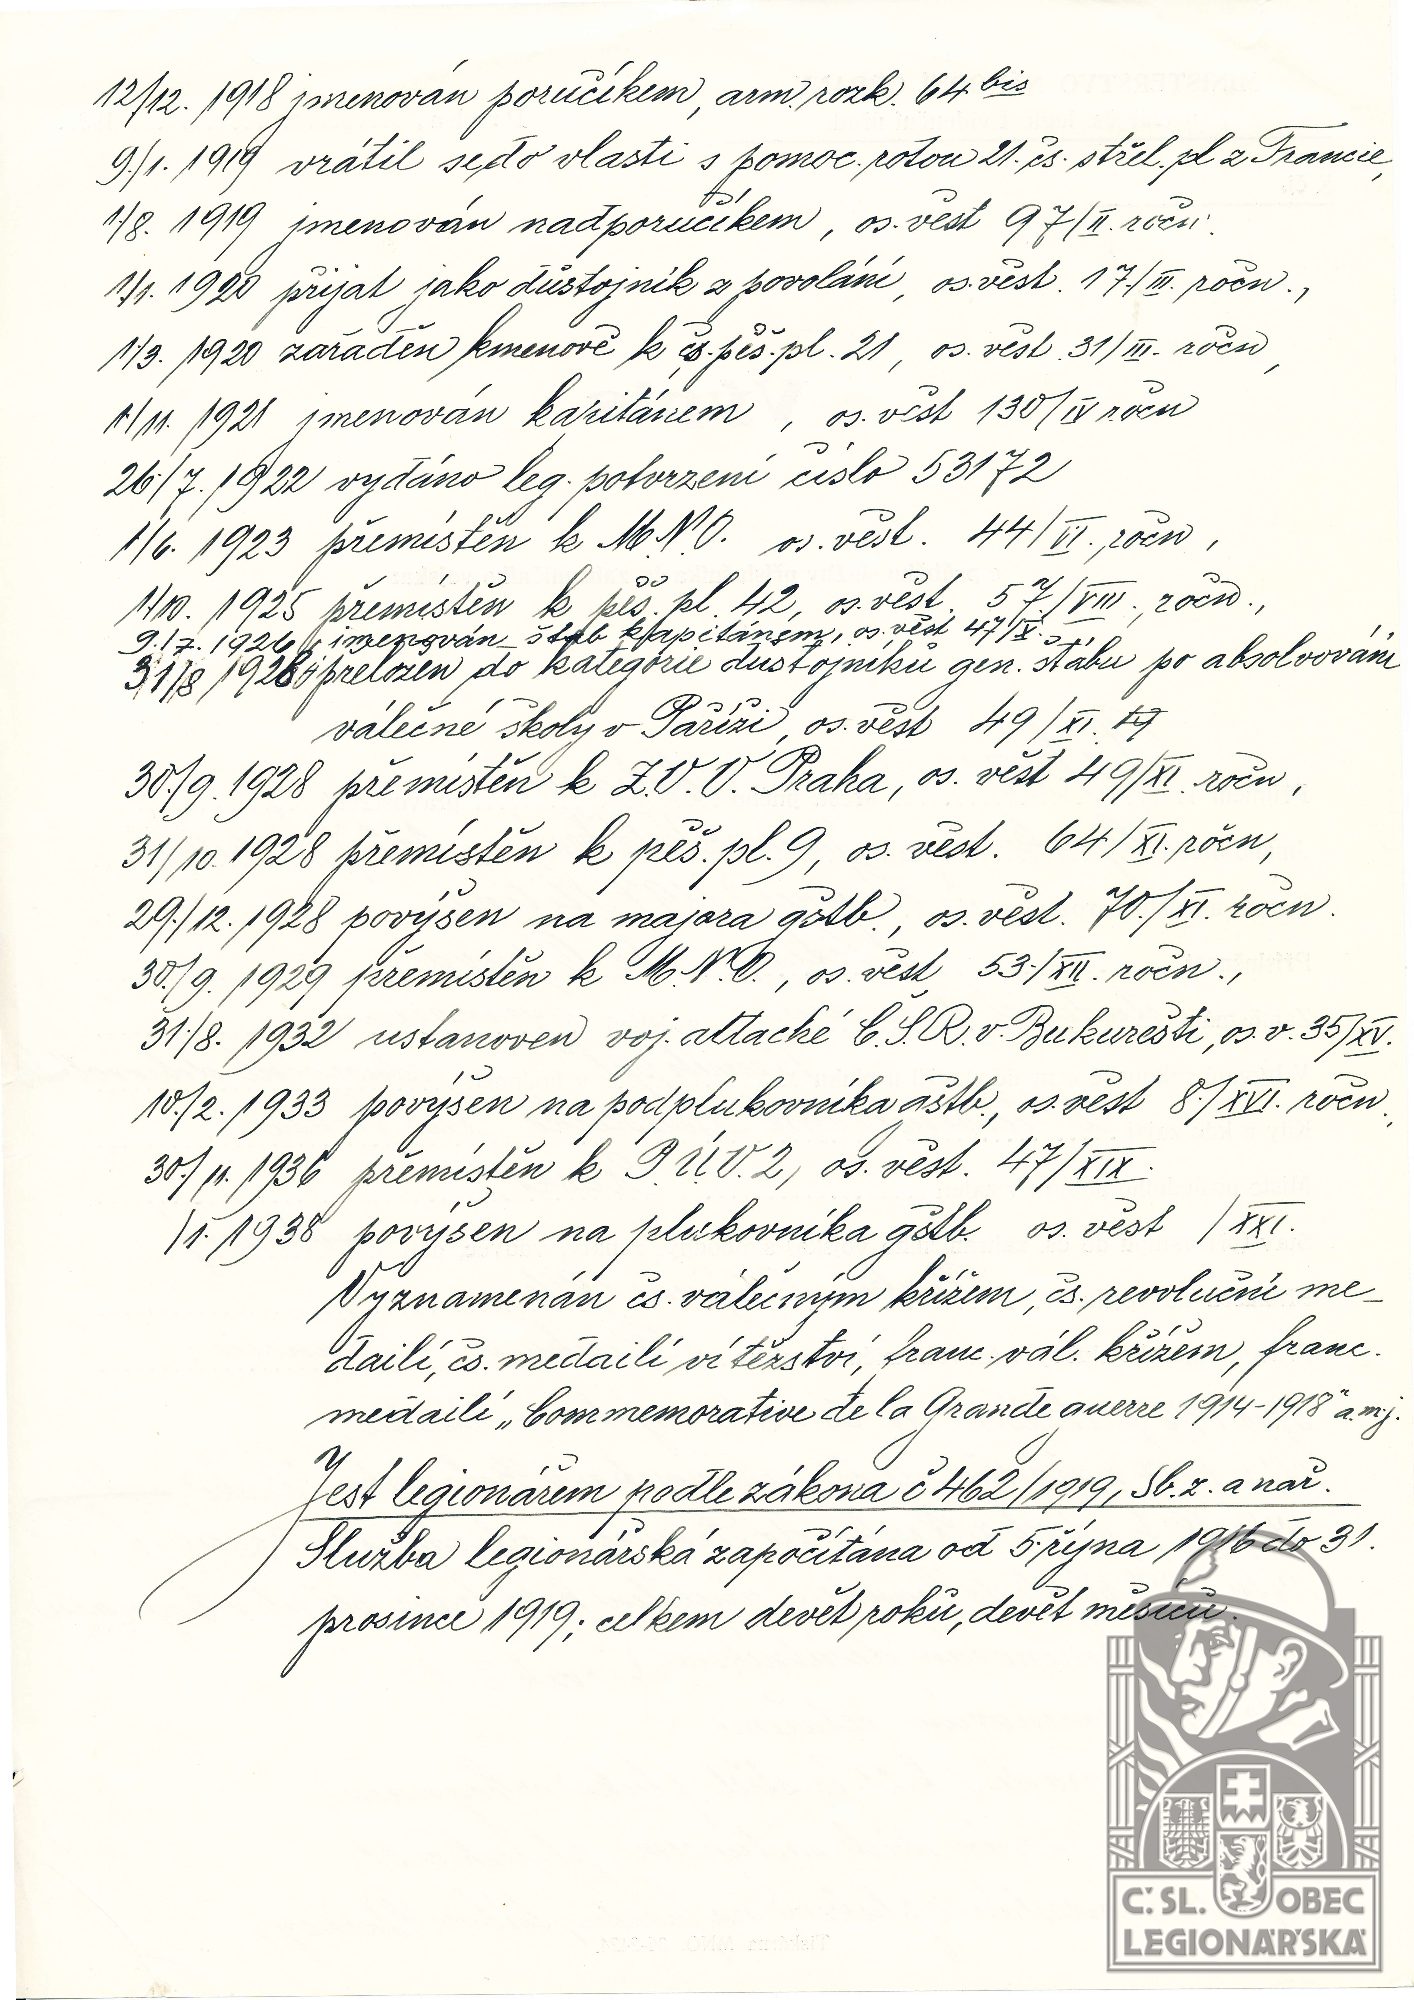 12/12. 1918 jmenován poručíkem, arm. rozk. 64 bis
9./1. 1919 vrátil se do vlasti s pomoc. rotou 21. čs. střel. pl z Francie,
1/8. 1919 jmenován nadporučíkem, os. věst 97/II. ročn.
1/1. 1920 přijat jako důstojník z povolání, os. věst. 17./III. ročn.,
1/3. 1920 zařaděn kmenově k čs. pěš. pl. 21, os. věst 31/III. ročn,
1/11. 1921 jmenován kapitánem, os. věst 130/IV ročn
26./7. 1922 vydáno leg. potvrzení číslo 53172
1/6. 1923 přemístěn k M.N.O. os. věst. 44/VI. ročn,
1/10. 1925 přemístěn k pěš. pl. 42, os. věst. 57./VIII. ročn.,
9./7. 1926 jmenován štáb kapitánem, os. věst 47/X.
31/8 1928 přeložen do kategorie důstojníků gen. štábu po absolvování
válečné školy v Paříži, os. věst 49/XI.
30./9. 1928 přemístěn k Z.V.V. Praha, os. věst 49/XI. ročn,
31/10. 1928 přemístěn k pěš. pl. 9, os. věst. 64/XI. ročn,
29./12. 1928 povýšen na majora gštb., os. věst. 70./XI. ročn.
30./9. 1929 přemístěn k M.N.O., os. věst 53./XII. ročn.,
31./8. 1932 ustanoven voj. attaché Č.S.R. v Bukurešti, os. v. 35/XV.
10./2. 1933 povýšen na podplukovníka gštb., os. věst 8./XVI. ročn,
30./11. 1936 přemístěn k P.Ú.V. 2, os. věst. 47/XIX.
/1. 1938 povýšen na plukovníka gštb. os. věst /XXI.
Vyznamenán čs. válečným křížem, čs. revoluční me-
dailí, čs. medailí vítězství, franc. vál. křížem, franc.
medailí „Commemorative de la Grande guerre 1914-1918“ a.m.j.
Jest legionářem podle zákona č 462/1919, Sb. z. a nař.
Služba legionářská započítána od 5. října 1916 do 31.
prosince 1919; celkem devět roků, devět měsíců.
Č. SL. OBEC
LEGIONÁŘSKÁ